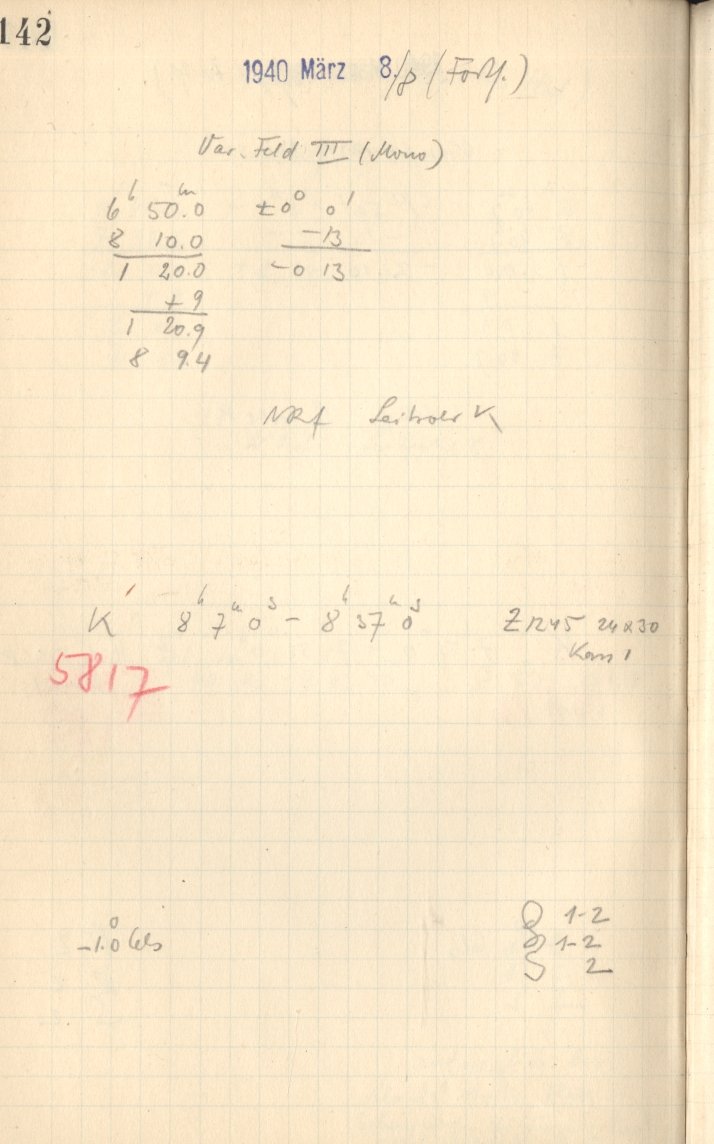 142
1940 März 8./9 (Forts.)
Var. Feld III (Mono)
6h 50.0m ±0° 0'
8 10.0 -13
1 20.0 -0 13
+ 9
1 20.9
8 9.4
K 8h 7m 0s - 8h 37m 0s Z 1245 24x30
Kass 1
5817
-1.0° Cels
1-2
1-2
S 2